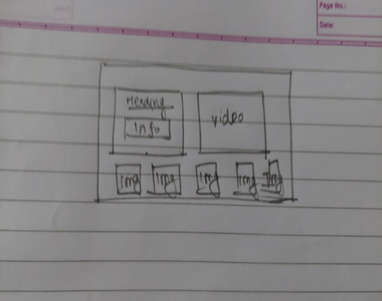 Page No.:
Date:
Heading
Info
video
img
img
img
img
img